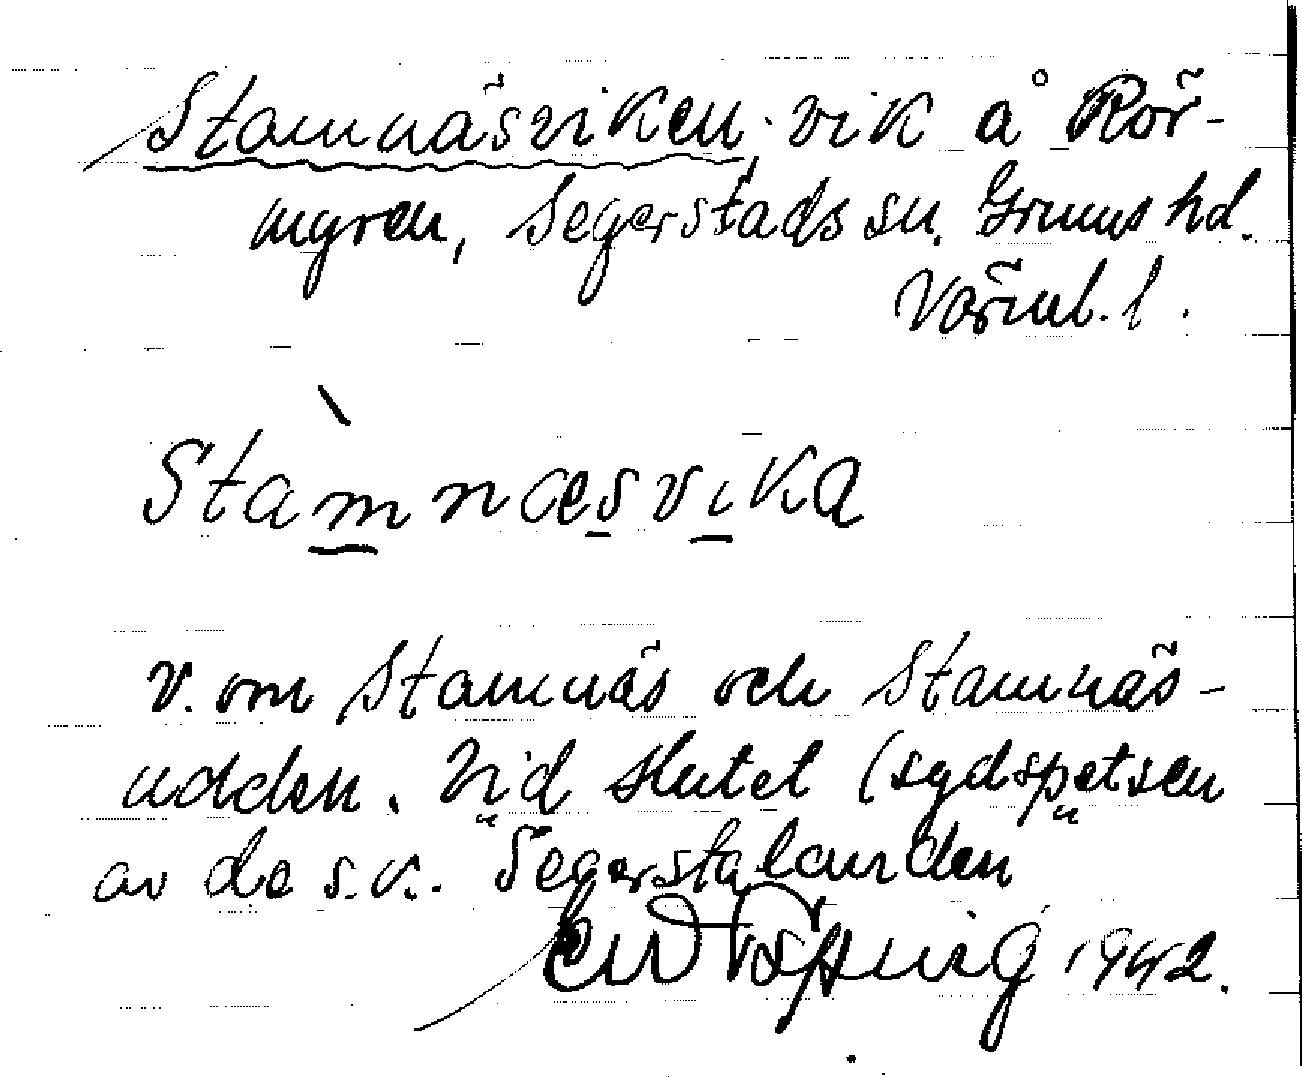 Stamnäsviken, vik å Rör-
myren, Segerstads sn. Grums hd.
Värml. l.
Stàmnæsvika
v. om Stamnäs och Stamnäs-
udden. Vid Hutet (sydspetsen
av de s.k. "Segerstalanden"
1942.